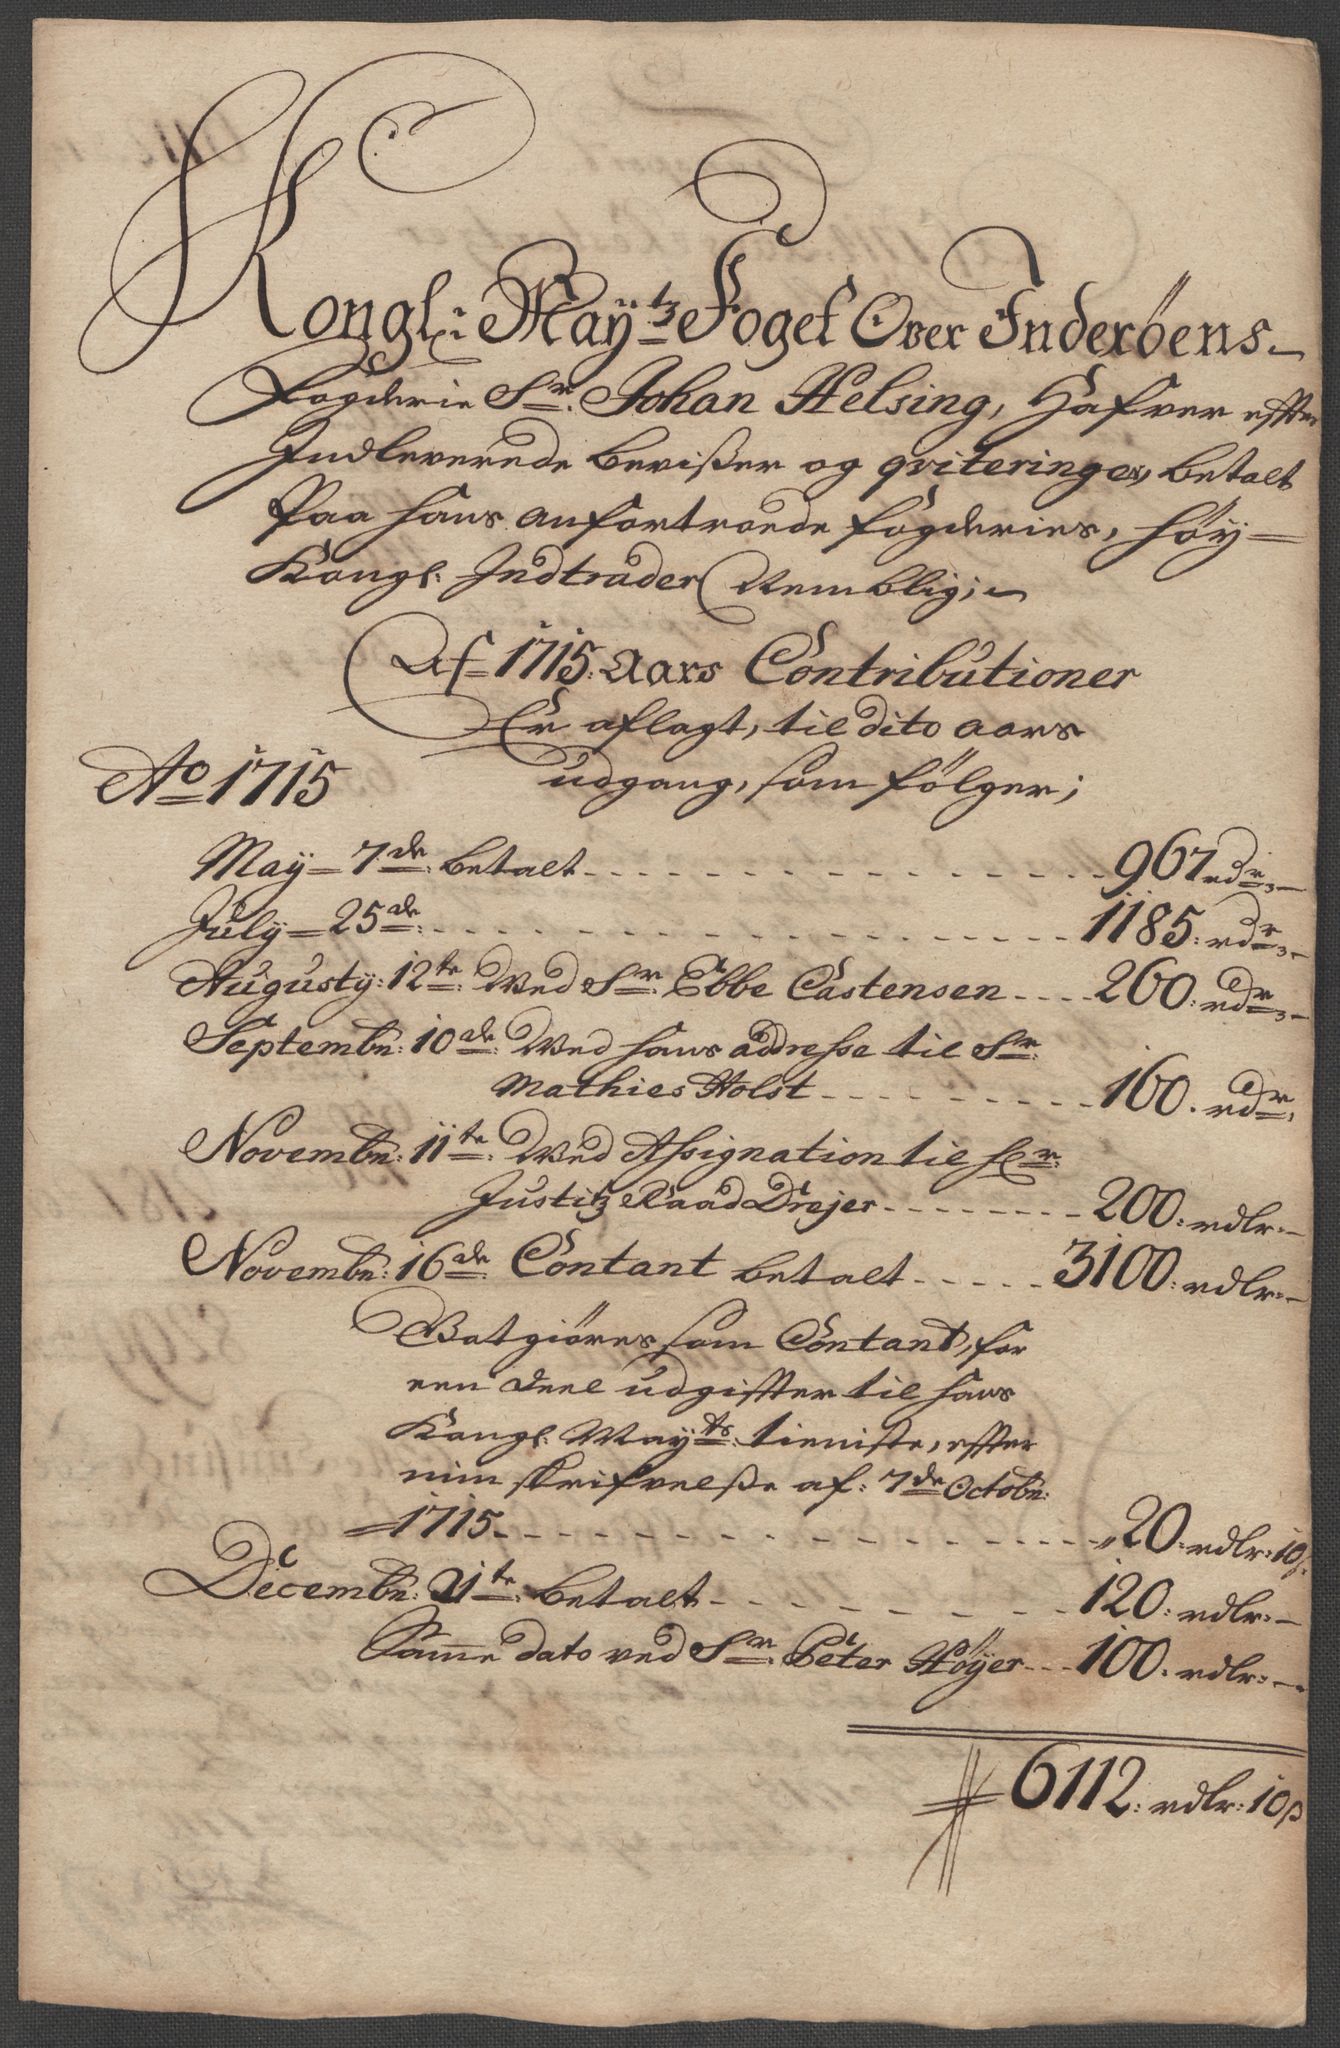 Kongl: Maÿtz Foget Over Inderöens
Fogderie Sr. Johan Helsing, Hafver effter
Indleverede bevißer og qviteringer, betalt
Paa hans anfortroede fogderies, höÿ-
Kongl. Indtrader Nemblig;
Af 1715. Aars Contributioner
Er aflagt, til dito aars
udgang, som fölger;
Ao 1715
Maÿ 7de betalt 967 rdr,
Julÿ 25de 1185. rdr,
Augustÿ: 12te Ved Sr. Ebbe Castensen 260. rdr,
Septembr: 10de Ved hans addresse til Sr.
Mathies Holst 160. rdr,
Novembr: 11te Ved Assignation til Hr.
Justitz Raad Drejer 200. rdlr:
Novembr: 16de Contant betalt 3100. rdlr:
Gotgiöres som Contant, for
een deel udgiffter til hans
Kongl. Maÿts. tieniste, effter
min skrifvelße af: 7de Octobr:
1715 20. rdlr: 10ß
Decembr: 21te betalt 120. rdlr:
Samme dato ved Sr. Peter Höÿer 100. rdlr:
6112. rdlr: 10ß